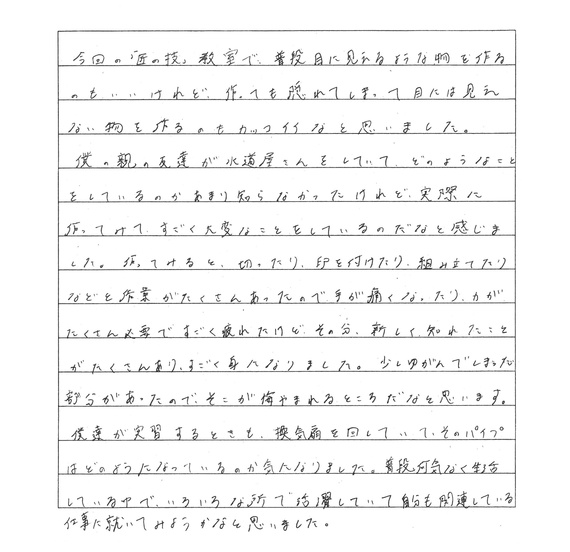 今回の「匠の技」教室で、普段目に見えるような物を作る
のもいいけれど、作っても隠れてしまって目には見え
ない物を作るのもカッコイイなと思いました。
僕の親の友達が水道屋さんをしていて、どのようなこと
をしているのかあまり知らなかったけれど、実際に
作ってみて、すごく大変なことをしているのだなと感じま
した。作ってみると、切ったり、印を付けたり、組み立てたり
などと作業がたくさんあったので手が痛くなったり、力が
たくさん必要ですごく疲れたけど、その分、新しく知れたこと
がたくさんあり、すごく身になりました。少しゆがんでしまった
部分があったので、そこが悔やまれるところだなと思います。
僕達が実習するときも、換気扇を回していて、そのパイプ
はどのようになっているのか気になりました。普段何気なく生活
している中で、いろいろな所で活躍していて自分も関連している
仕事に就いてみようかなと思いました。